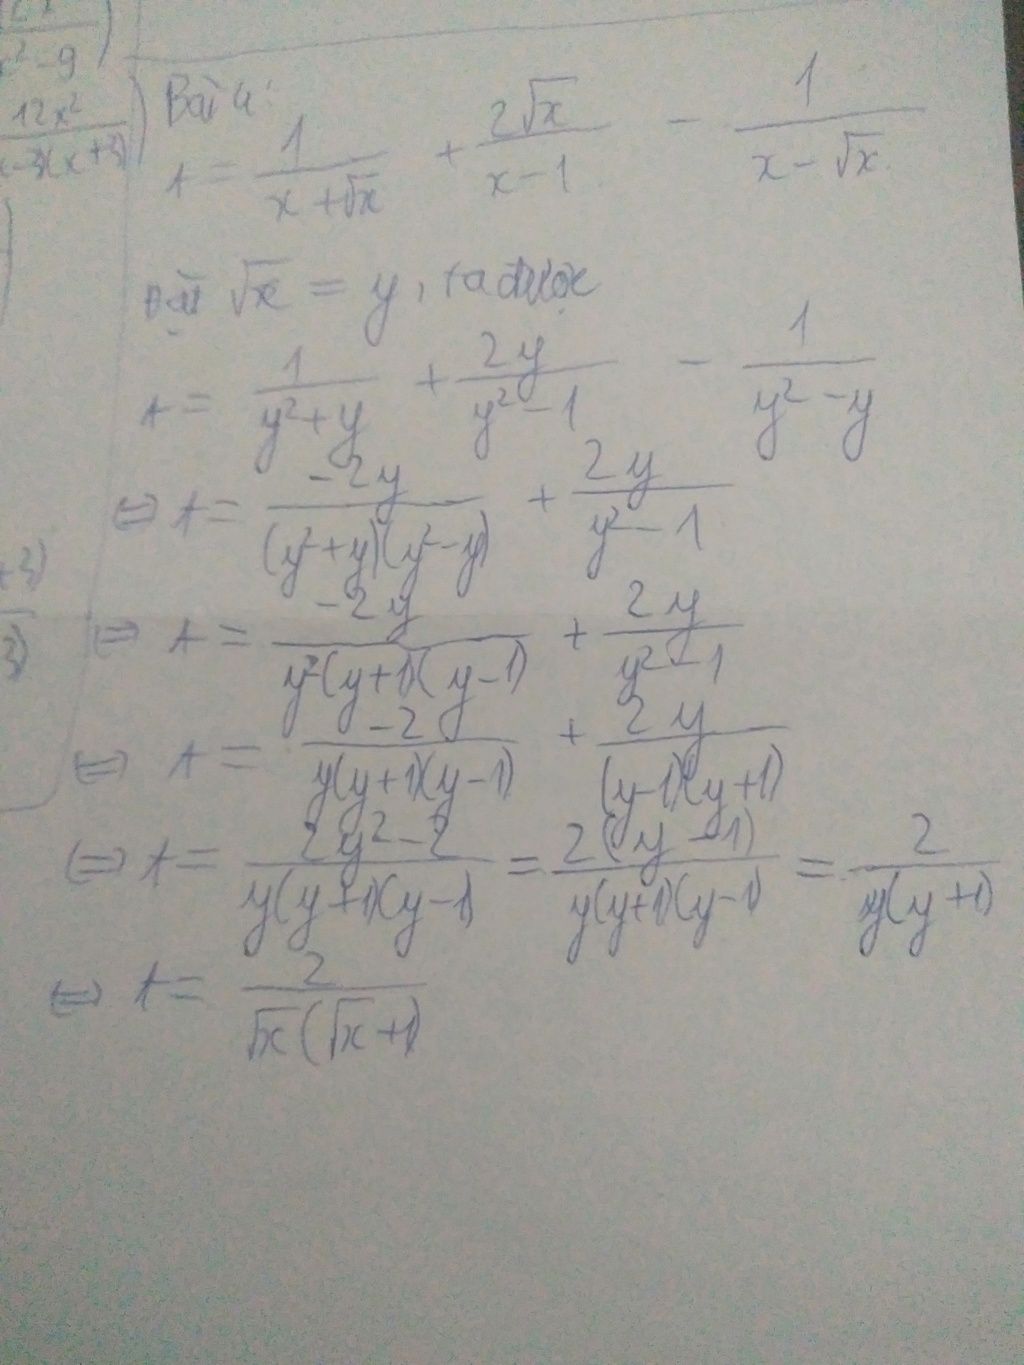 x² - 9
12x²
Bài 4:
A = 1/(x + √x) + 2√x/(x - 1) - 1/(x - √x)
Đặt √x = y, ta được
A = 1/(y² + y) + 2y/(y² - 1) - 1/(y² - y)
⇔ A = -2y/((y² + y)(y² - y)) + 2y/(y² - 1)
⇔ A = -2y/(y²(y + 1)(y - 1)) + 2y/(y² - 1)
⇔ A = -2/(y(y + 1)(y - 1)) + 2y/((y - 1)(y + 1))
⇔ A = (2y² - 2)/(y(y + 1)(y - 1)) = 2(y - 1)/(y(y + 1)(y - 1)) = 2/(y(y + 1))
⇔ A = 2/(√x(√x + 1))